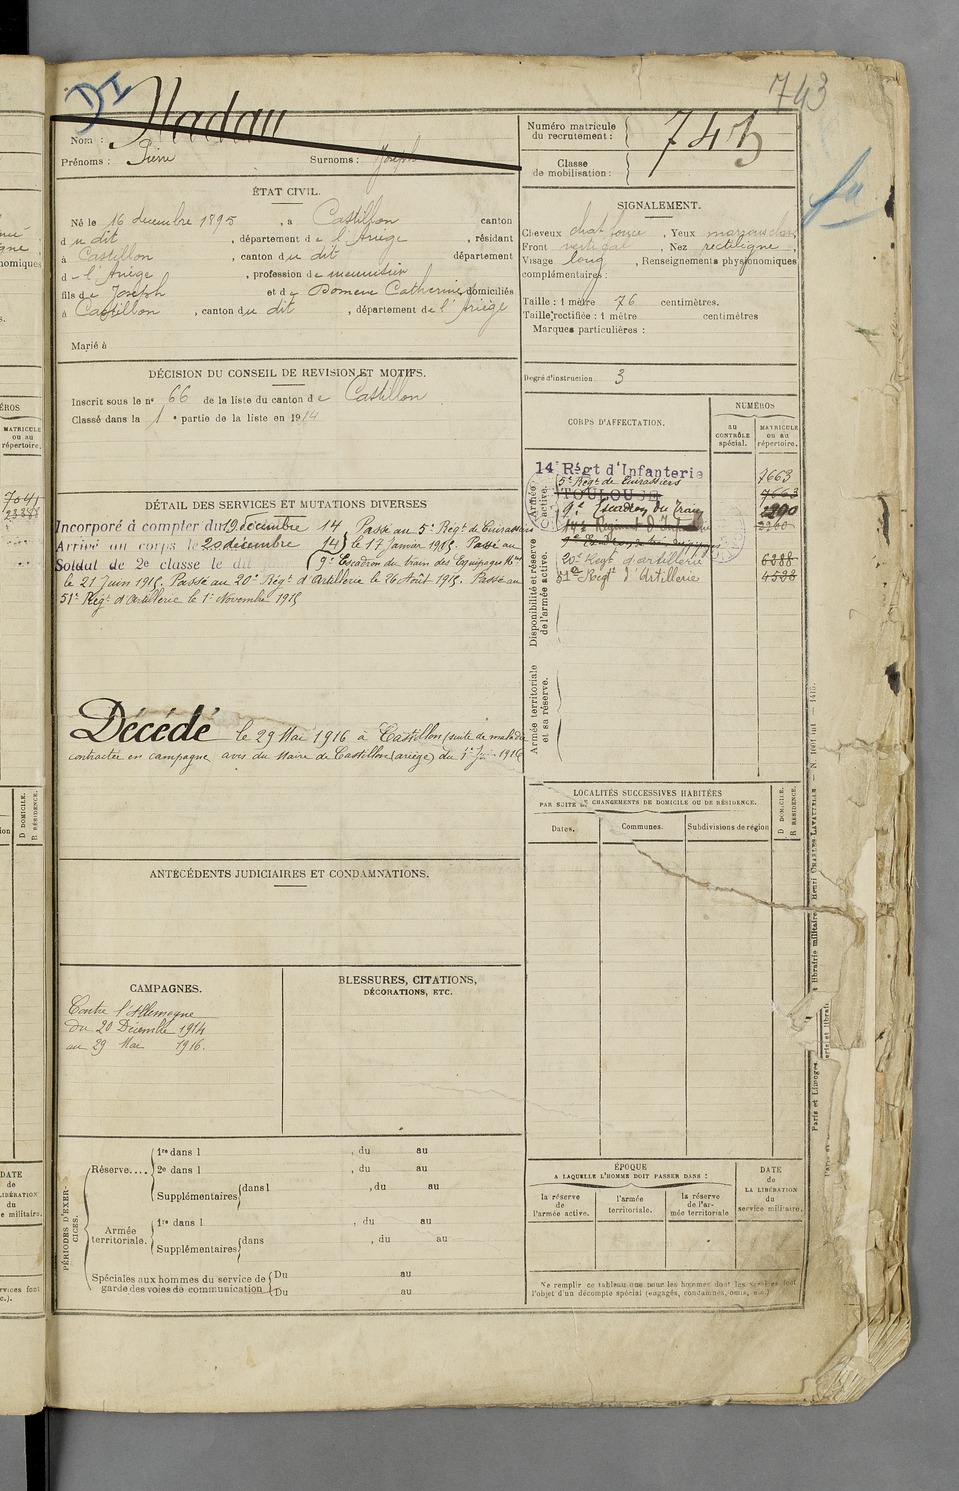 743
DI
Nadau
Nom :
Prénoms : Pierre Surnoms : Joseph
Numéro matricule
du recrutement :
743
Classe
de mobilisation :
ÉTAT CIVIL.
Né le 16 décembre 1895 , à Castillon canton
du dit , département de l'Ariège , résidant
à Castillon , canton du dit département
d - l'Ariège , profession de menuisier
fils de Joseph et de Domenc Catherine, domiciliés
à Castillon , canton du dit , département de l'Ariège
Marié à
SIGNALEMENT.
Cheveux chat. foncé , Yeux marron clair,
Front vertical , Nez rectiligne ,
Visage long , Renseignements physionomiques
complémentaires :
Taille : 1 mètre 76 centimètres.
Taille rectifiée : 1 mètre centimètres
Marques particulières :
Degré d'instruction 3
DÉCISION DU CONSEIL DE REVISION ET MOTIFS.
Inscrit sous le nº 66 de la liste du canton de Castillon
Classé dans la 1e partie de la liste en 1914
CORPS D'AFFECTATION.
NUMÉROS
au
CONTRÔLE
spécial.
MATRICULE
ou au
répertoire.
Armée
active.
14e Régt d'Infanterie 7663
5e Régt de Cuirassiers
TOULOUSE 7663
9e Escadron du Train
Disponibilité et réserve
de l'armée active.
20e Régt d'artillerie 6388
51e Régt d'Artillerie 4538
Armée territoriale
et sa réserve.
DÉTAIL DES SERVICES ET MUTATIONS DIVERSES
Incorporé à compter du 19 décembre 14 Passé au 5e Régt de Cuirassiers
Arrivé au corps le 20 décembre 14 le 17 Janvier 1915. Passé au
Soldat de 2e classe le dit 9e Escadron du train des Equipages Mres
le 21 Juin 1915. Passé au 20e Régt d'Artillerie le 26 Août 1915. Passé au
51e Régt d'Artillerie le 1er Novembre 1915
Décédé le 29 Mai 1916 à Castillon (suite de maladie
contractée en campagne, avis du Maire de Castillon (ariège) du 1er 1916
LOCALITÉS SUCCESSIVES HABITÉES
PAR SUITE DE CHANGEMENTS DE DOMICILE OU DE RÉSIDENCE.
Dates.
Communes.
Subdivisions de région
D DOMICILE.
R RÉSIDENCE.
ANTÉCÉDENTS JUDICIAIRES ET CONDAMNATIONS.
CAMPAGNES.
Contre l'Allemagne
du 20 Décembre 1914
au 29 Mai 1916.
BLESSURES, CITATIONS,
DÉCORATIONS, ETC.
PÉRIODES D'EXER-
CICES.
Réserve....
1re dans l , du au
2e dans l , du au
Supplémentaires
dans l , du au
Armée
territoriale.
1re dans l , du au
Supplémentaires
dans , du au
Spéciales aux hommes du service de
garde des voies de communication
Du au
Du au
ÉPOQUE
A LAQUELLE L'HOMME DOIT PASSER DANS :
la réserve
de
l'armée active.
l'armée
territoriale.
la réserve
de l'ar-
mée territoriale
DATE
de
LA LIBÉRATION
du
service militaire.
Ne remplir ce tableau que pour les hommes dont les services font
l'objet d'un décompte spécial (engagés, condamnés, omis, etc.)